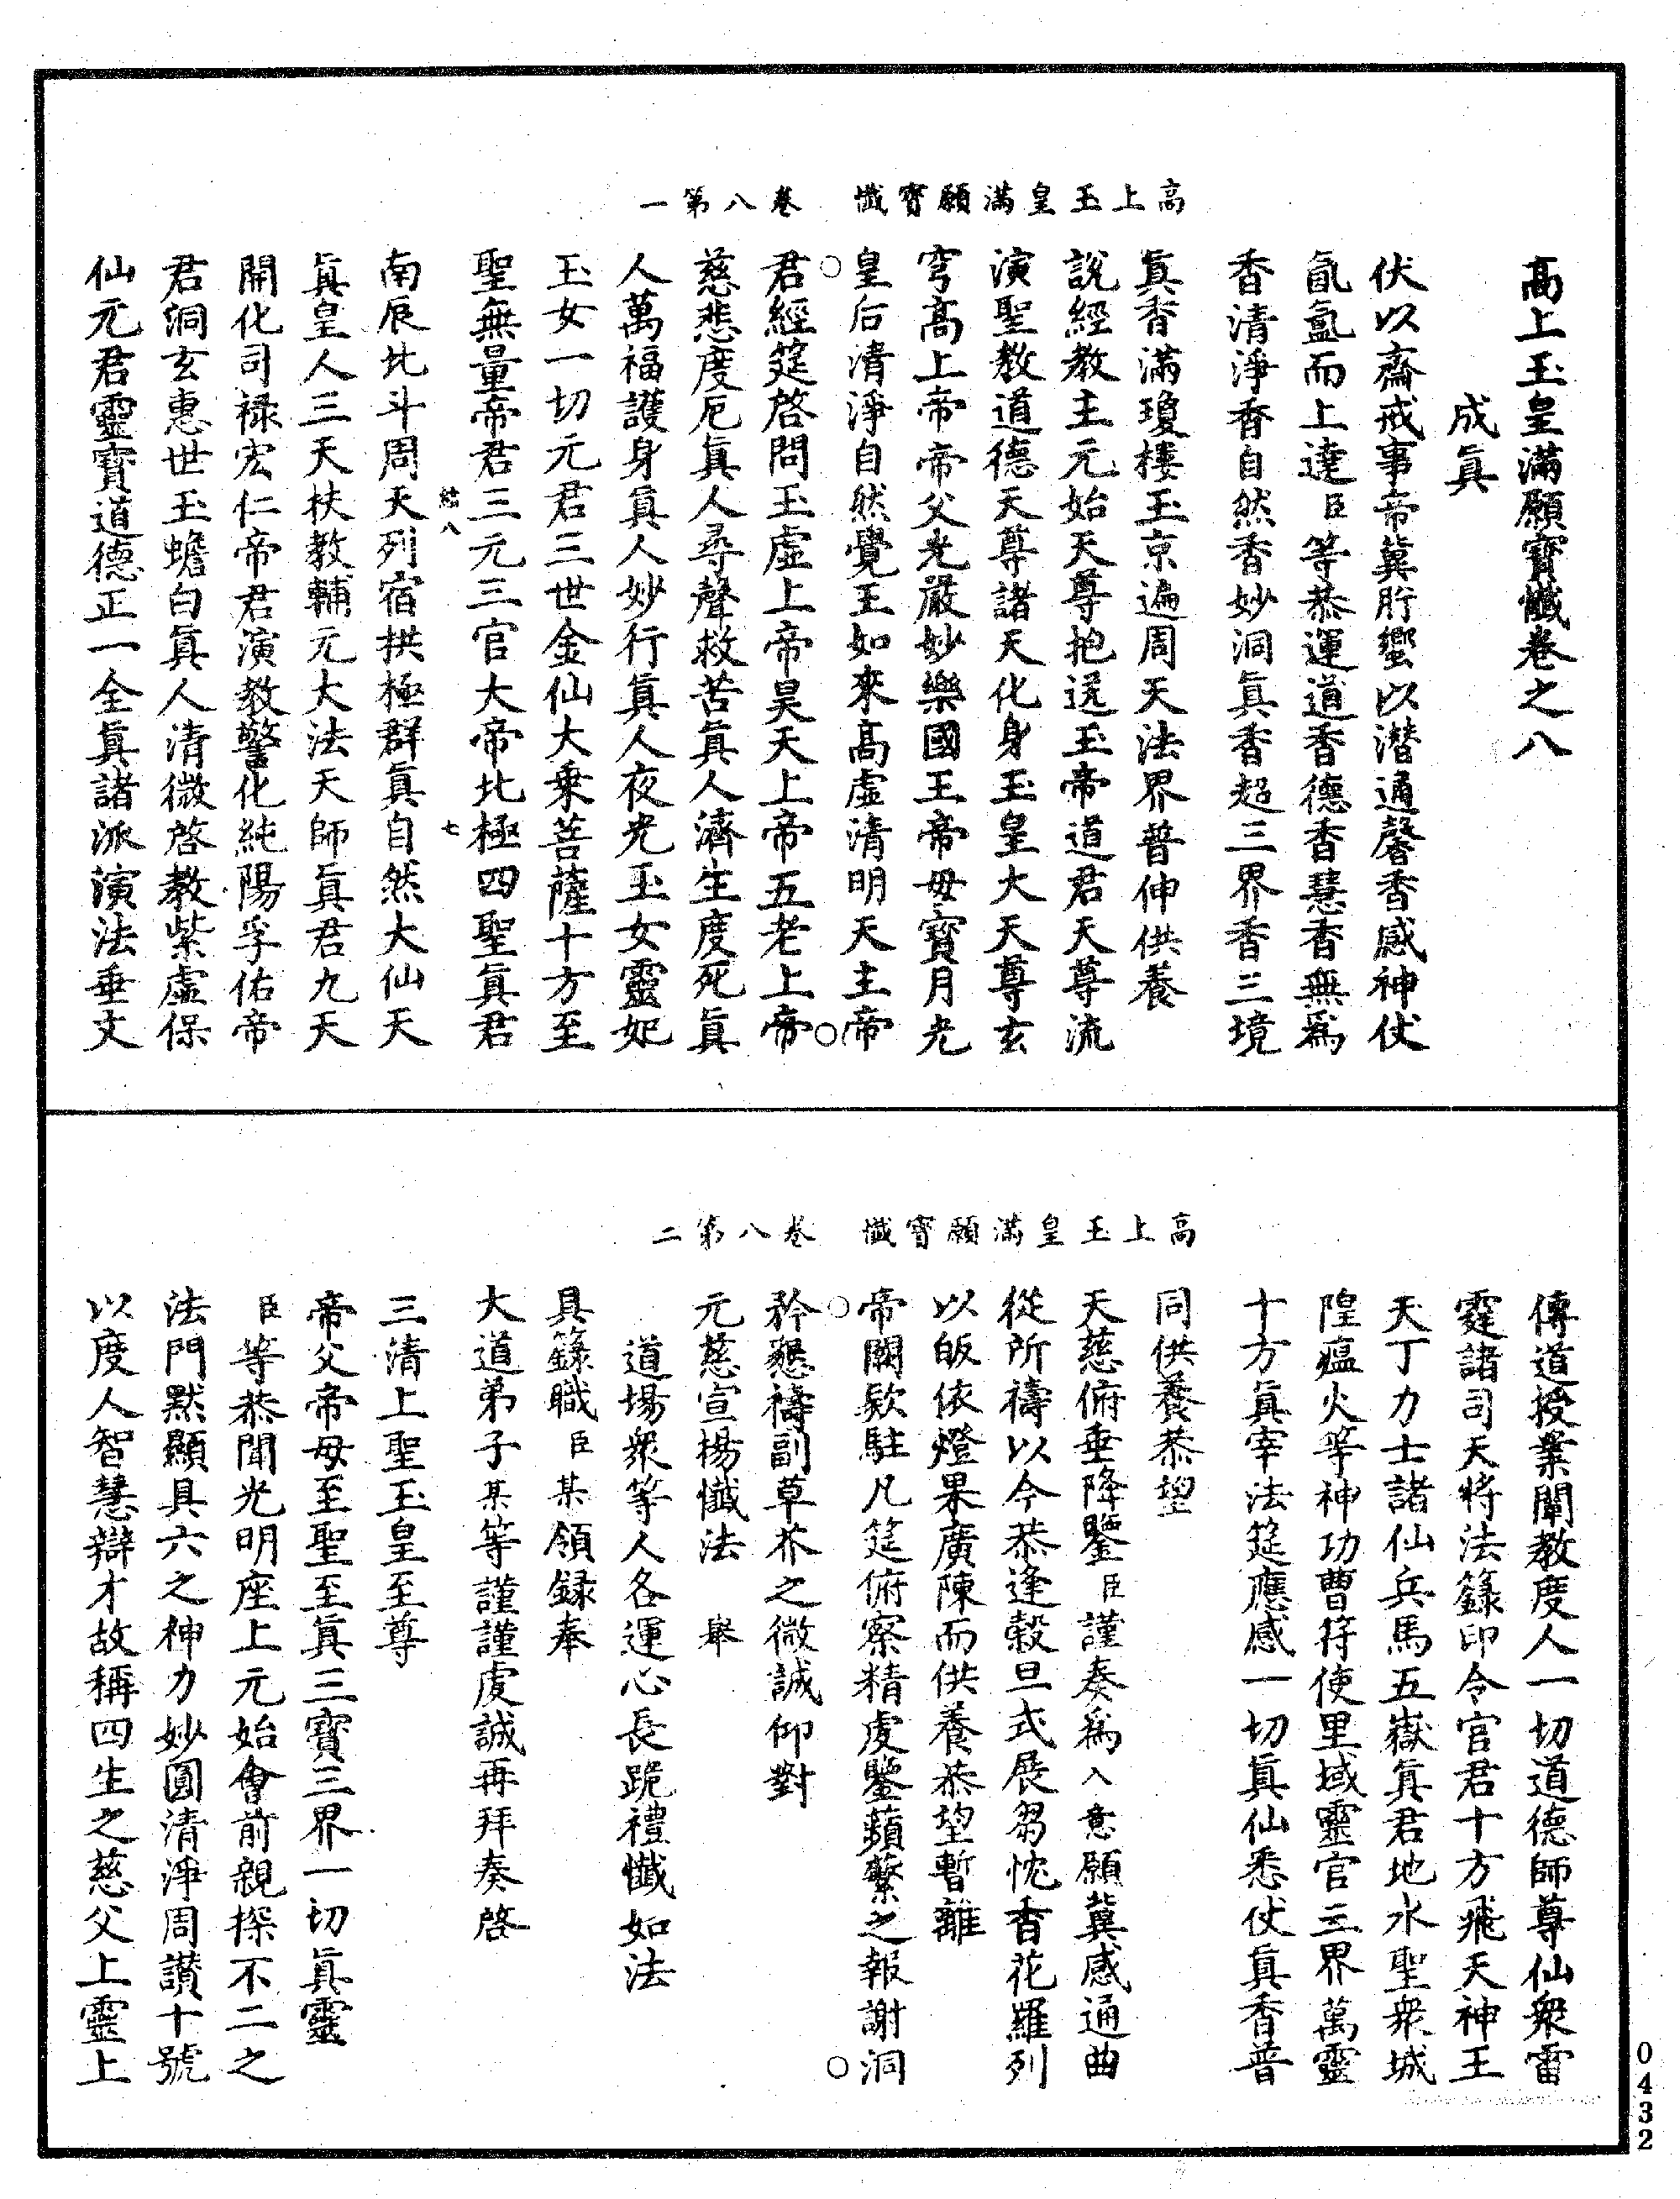 高上玉皇滿願寶懺　卷八第一
高上玉皇滿願寶懺卷之八
成眞
伏以齋戒事帝冀肸蠁以潛通馨香感神仗
氤氳而上達臣等恭運道香德香慧香無爲
香清淨香自然香妙洞眞香超三界香三境
眞香滿瓊樓玉京遍周天法界普伸供養
說經教主元始天尊抱送玉帝道君天尊流
演聖教道德天尊諸天化身玉皇大天尊玄
穹高上帝帝父光嚴妙樂國王帝毋寶月光
皇后清淨自然覺王如來高虛清明天主帝
君經筵啓問玉虛上帝昊天上帝五老上帝
慈悲度厄眞人尋聲救苦眞人濟生度死眞
人萬福護身眞人妙行眞人夜光玉女靈妃
玉女一切元君三世金仙大乗菩薩十方至
聖無量帝君三元三官大帝北極四聖眞君
結八　七
南辰北斗周天列宿拱極群眞自然大仙天
眞皇人三天扶教輔元大法天師眞君九天
開化司禄宏仁帝君演教警化純陽孚佑帝
君洞玄惠世玉蟾白眞人清微啓教紫虛保
仙元君靈寶道德正一全眞諸派演法垂文
高上玉皇滿願寶懺　卷八第二
傳道授業闡教度人一切道德師尊仙衆雷
霆諸司天將法籙印令官君十方飛天神王
天丁力士諸仙兵馬五嶽眞君地水聖衆城
隍瘟火等神功曹符使里域靈官三界萬靈
十方眞宰法筵應感一切眞仙悉仗眞香普
同供養恭望
天慈俯垂降鑒臣謹奏爲入意願冀感通曲
從所禱以今恭逢穀旦式展芻忱香花羅列
以皈依燈果廣陳而供養恭望暫離
帝闕欵駐凡筵俯察精虔鑒蘋蘩之報謝洞
矜懇禱副草芥之微誠仰對
元慈宣楊懺法　舉
道場衆等人各運心長跪禮懺如法
具籙職臣某領録奉
大道弟子某等謹謹虔誠再拜奏啓
三清上聖玉皇至尊
帝父帝母至聖至眞三寶三界一切眞靈
臣等恭聞光明座上元始會前親探不二之
法門默顯具六之神力妙圓清淨周讃十號
以度人智慧辯才故稱四生之慈父上靈上
0432